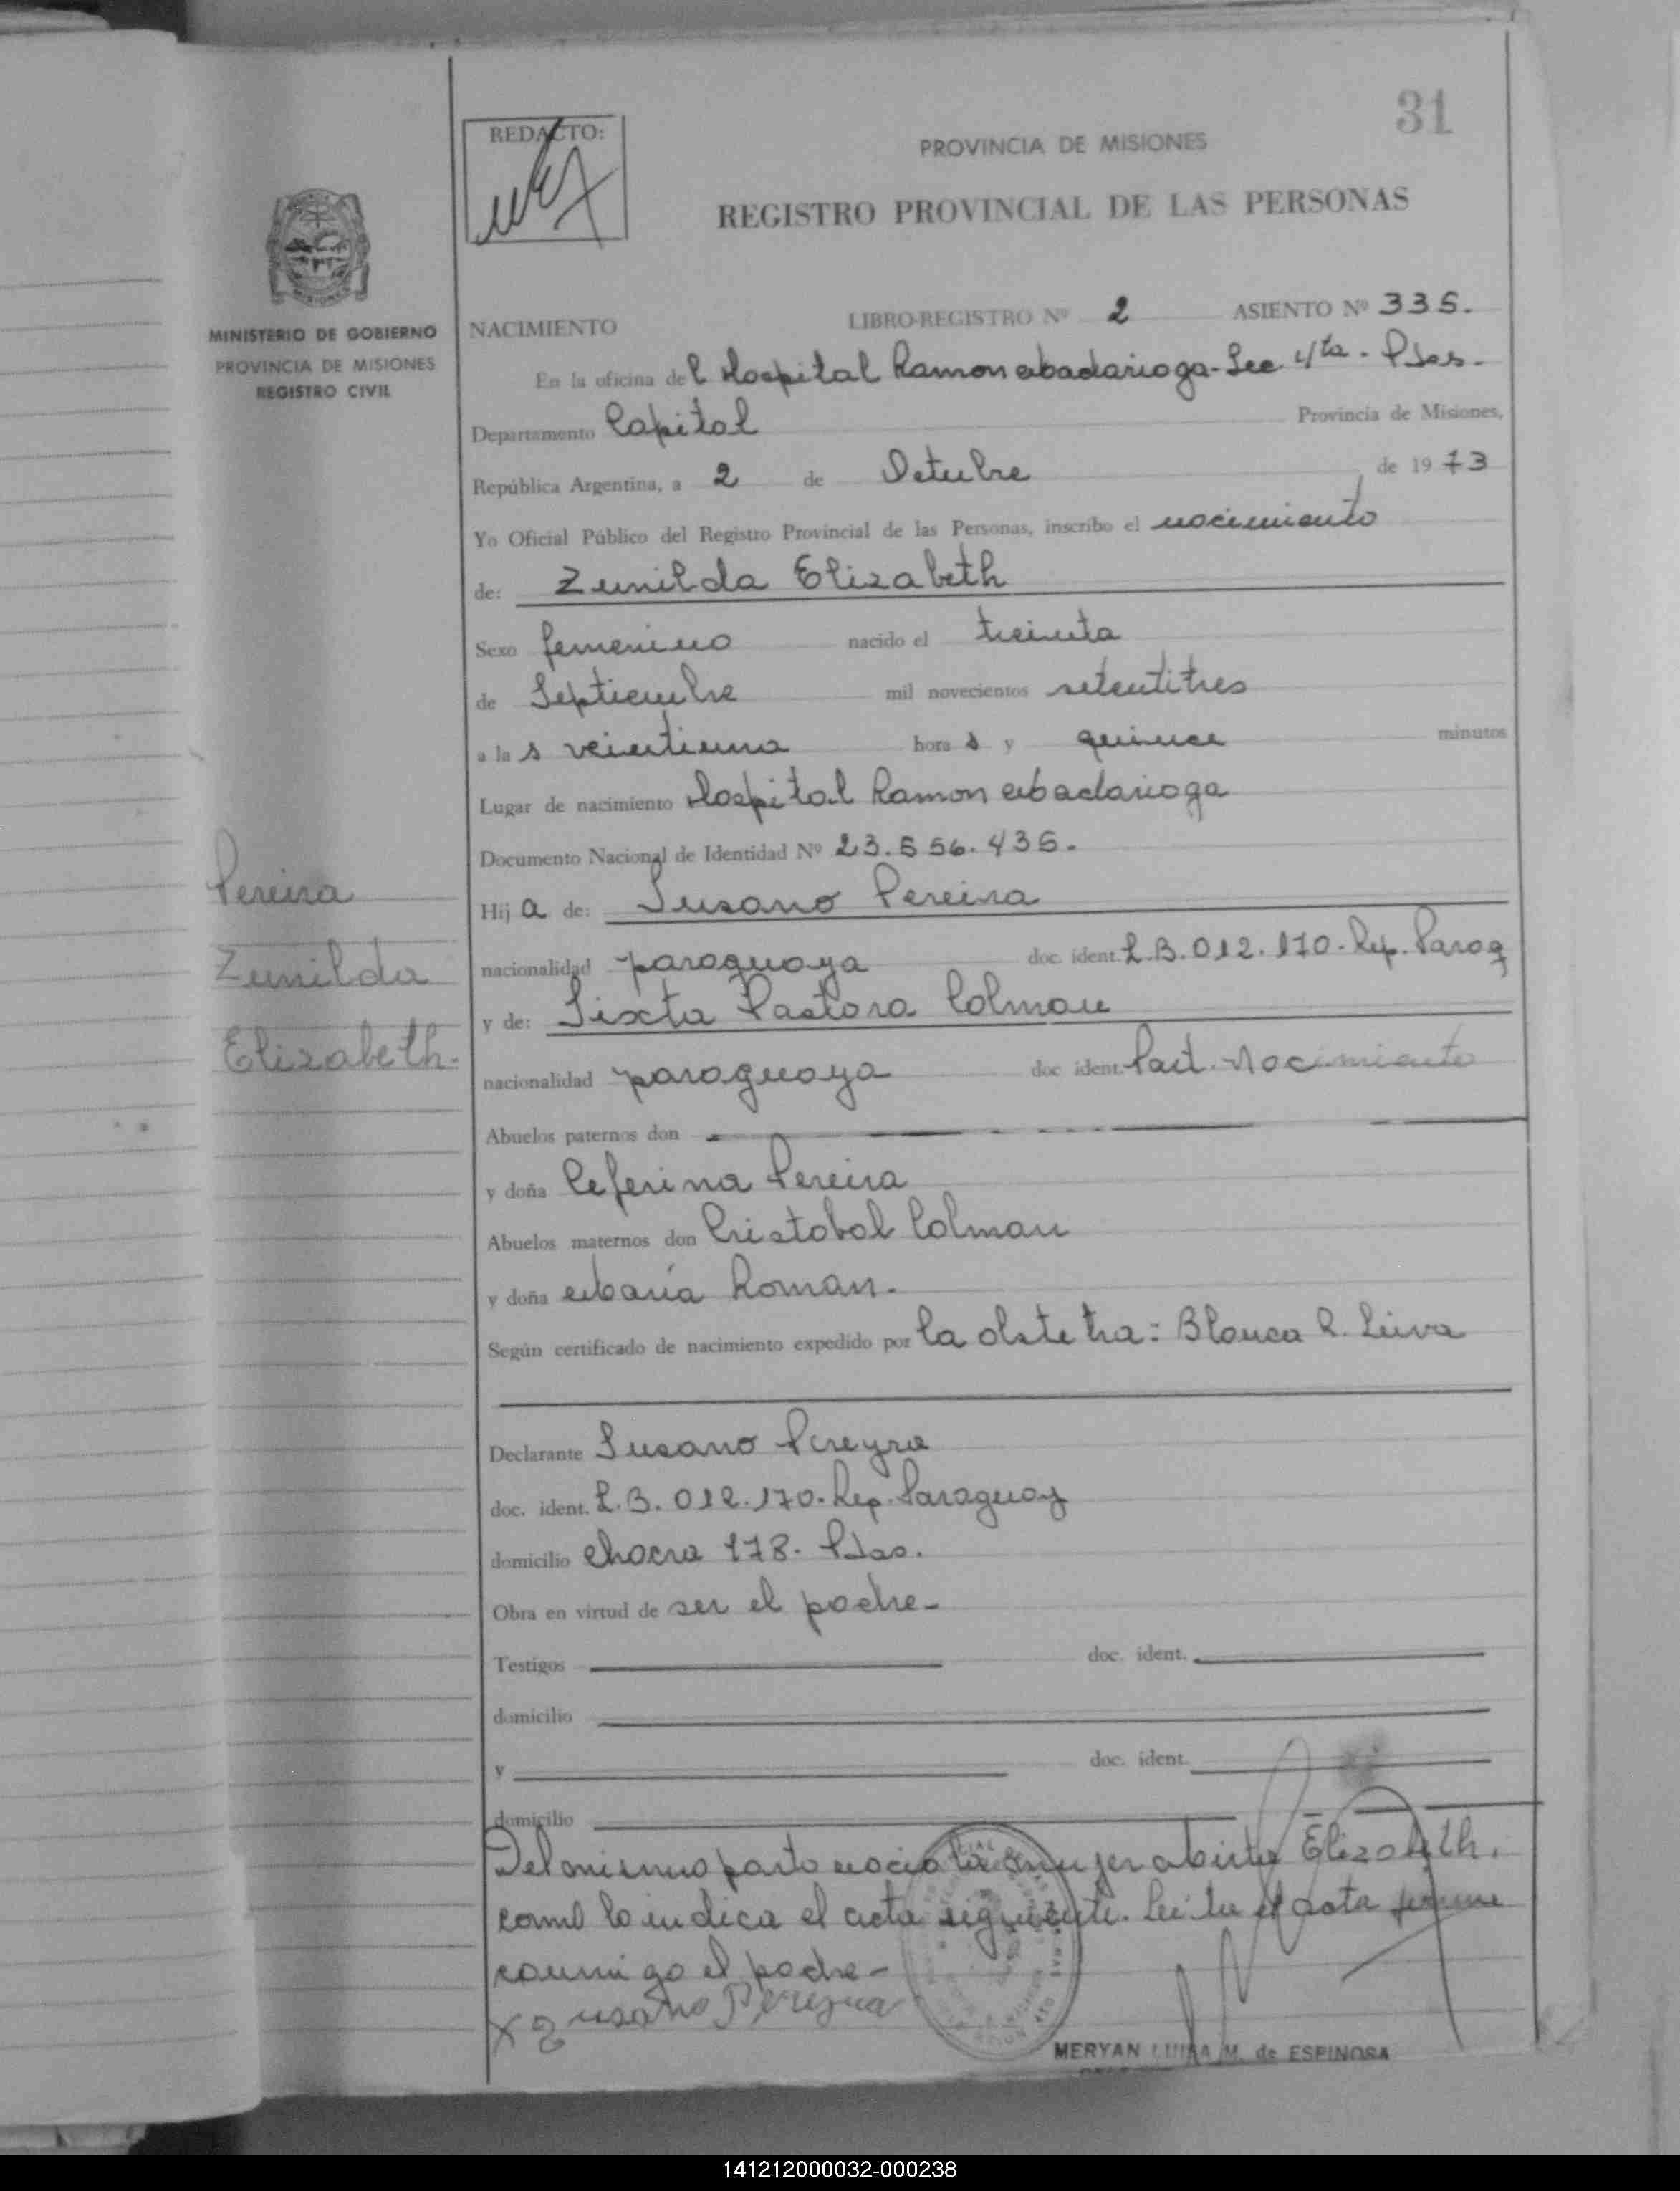 31
REDACTO:
PROVINCIA DE MISIONES
REGISTRO PROVINCIAL DE LAS PERSONAS
MINISTERIO DE GOBIERNO
PROVINCIA DE MISIONES
REGISTRO CIVIL
NACIMIENTO LIBRO-REGISTRO Nº 2 ASIENTO Nº 335.
En la oficina del Hospital Ramon Madariaga - Sec 4ta. Pdas.
Departamento Capital Provincia de Misiones,
República Argentina, a 2 de Octubre de 1973
Yo Oficial Público del Registro Provincial de las Personas, inscribo el nacimiento
de: Zunilda Elizabeth
Sexo femenino nacido el treinta
de Septiembre mil novecientos setentitres
a las veintiuna horas y quince minutos
Lugar de nacimiento Hospital Ramon Madariaga
Documento Nacional de Identidad Nº 23.556.435.
Hija de: Susano Pereira
nacionalidad paraguaya doc. ident. L.B. 012.170. Rep. Parag
y de: Sixta Pastora Colman
nacionalidad paraguaya doc ident. Part. Nacimiento
Pereira
Zunilda
Elizabeth.
Abuelos paternos don
y doña Ceferina Pereira
Abuelos maternos don Cristobal Colman
y doña María Roman.
Según certificado de nacimiento expedido por la obstetra: Blanca R. Leiva
Declarante Susano Pereyra
doc. ident. L.B. 012.170. Rep. Paraguay
domicilio Chacra 178. Pdas.
Obra en virtud de ser el padre-
Testigos doc. ident.
domicilio
y doc. ident.
domicilio
Del mismo parto nacio la mujer Elizabeth,
como lo indica el acta siguiente. Leida el acta firma
conmigo el padre-
x Zusano Pereyra
MERYAN LUISA M. de ESPINOSA
141212000032-000238